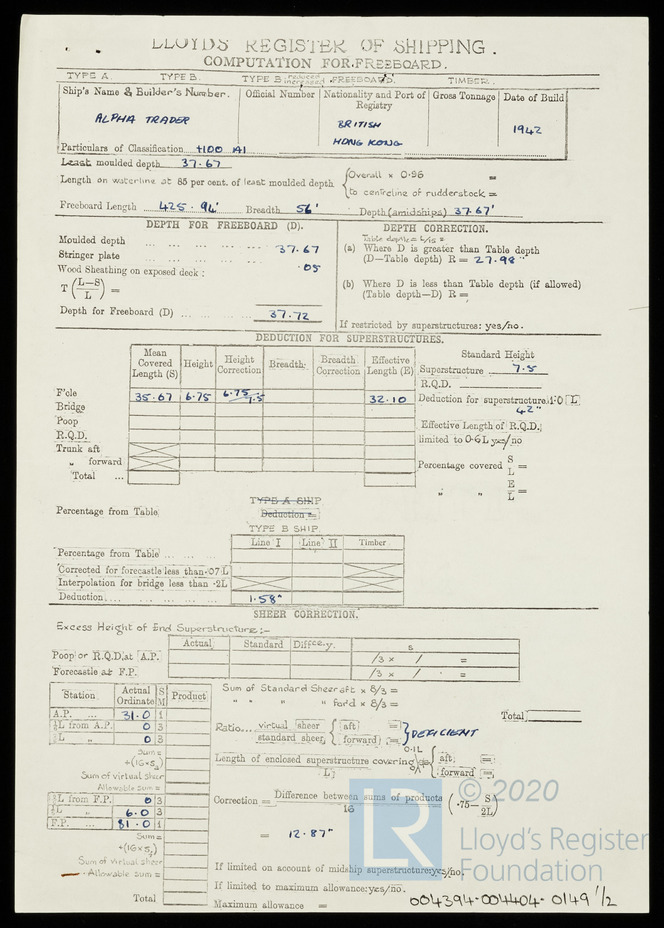 LLOYD'S REGISTER OF SHIPPING.
COMPUTATION FOR FREEBOARD.
TYPE A. TYPE B. TYPE B reduced increased FREEBOARD. TIMBER.
Ship's Name & Builder's Number. Official Number Nationality and Port of Registry Gross Tonnage Date of Build
ALPHA TRADER BRITISH HONG KONG 1942
Particulars of Classification +100 A1
Least moulded depth 37.67
Length on waterline at 85 per cent. of least moulded depth { Overall x 0.96 =
to centreline of rudderstock =
Freeboard Length 425.94' Breadth 56' Depth (amidships) 37.67'
DEPTH FOR FREEBOARD (D).
Moulded depth ... ... ... ... 37.67
Stringer plate ... ... ... ...
Wood Sheathing on exposed deck: .05
T (L-S/L) =
Depth for Freeboard (D) ... ... ... 37.72
DEPTH CORRECTION.
Table depth = L/15 =
(a) Where D is greater than Table depth
(D—Table depth) R = 27.98"
(b) Where D is less than Table depth (if allowed)
(Table depth—D) R =
If restricted by superstructures: yes/no.
DEDUCTION FOR SUPERSTRUCTURES.
Mean Covered Length (S) Height Height Correction Breadth Breadth Correction Effective Length (E)
F'cle 35.67 6.75 6.75/7.5 32.10
Bridge
Poop
R.Q.D.
Trunk aft
" forward
Total ...
Standard Height
Superstructure 7.5
R.Q.D.
Deduction for superstructure 1.0 L
42"
Effective Length of R.Q.D.
limited to 0.6L yes/no
Percentage covered S/L =
" " E/L =
TYPE A SHIP
Percentage from Table Deduction =
TYPE B SHIP.
Line I Line II Timber
Percentage from Table ... ... ...
Corrected for forecastle less than .07 L
Interpolation for bridge less than .2L
Deduction ... ... ... ... 1.58"
SHEER CORRECTION.
Excess Height of End Superstructure:-
Actual Standard Diffcey. s
Poop or R.Q.D. at A.P. /3 x / . =
Forecastle at F.P. /3 x / . =
Station Actual Ordinate S M Product
A.P. ... 31.0 1
L from A.P. 0 3
L " 0 3
Sum =
+(16×s)
Sum of virtual sheer
Allowable sum =
L from F.P. 0 3
L " 6.0 3
F.P. ... 81.0 1
Sum =
+(16×s)
Sum of virtual sheer
Allowable sum =
Total
Sum of Standard Sheer aft x 8/3 =
" " " " for'd x 8/3 =
Total
Ratio... virtual sheer / standard sheer { aft = forward = } DEFICIENT
Length of enclosed superstructure covering 0.1L { aft: =
L forward =
Correction = Difference between sums of products / 16 (.75 — S/2L)
= 12.87"
If limited on account of midship superstructure: yes/no.
If limited to maximum allowance: yes/no.
Maximum allowance =
004394-004404-0149 1/2
LR © 2020
Lloyd's Register
Foundation